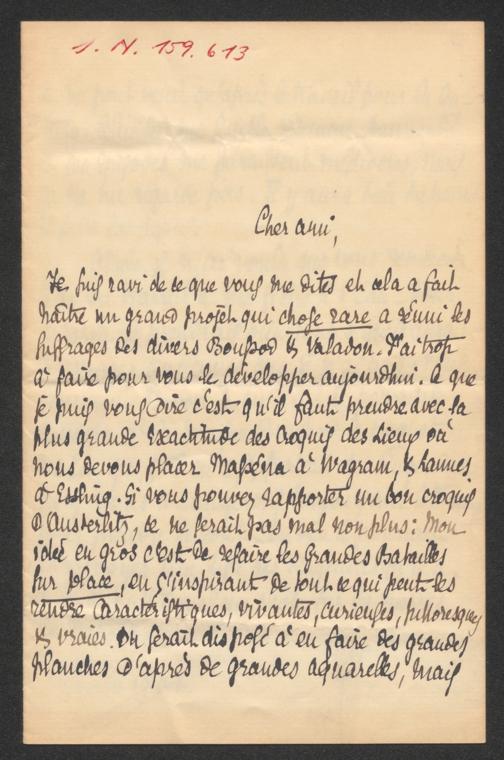 I. N. 159.613
Cher ami,
Je suis ravi de ce que vous me dites et cela a fait
naître un grand projet qui chose rare a réuni les
suffrages des divers Boussod & Valadon. J'ai trop
à faire pour vous le développer aujourdhui. Ce que
je puis vous dire c'est qu'il faut prendre avec la
plus grande exactitude des croquis des Lieux où
nous devons placer Masséna à Wagram, & Lannes
à Essling. Si vous pouvez rapporter un bon croquis
d'Austerlitz, ce ne serait pas mal non plus : Mon
idée en gros c'est de refaire les Grandes Batailles
sur place, en s'inspirant de tout ce qui peut les
rendre caractéristiques, vivantes, curieuses, pittoresques
& vraies. On serait disposé à en faire des grandes
planches d'après de grandes aquarelles, mais